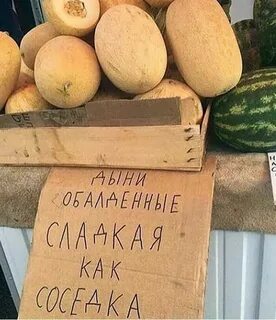 ДЫНИ
ОБАЛДЕННЫЕ
СЛАДКАЯ
КАК
СОСЕДКА